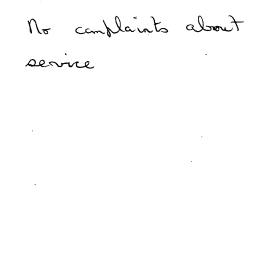 No complaints about
service